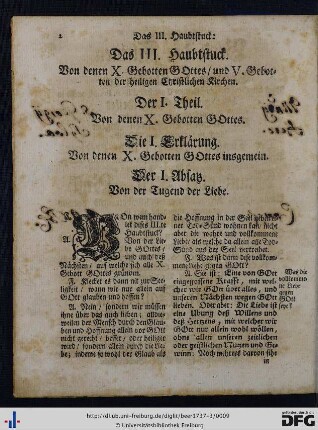 2 Das III. Haubtstuck:
Das III. Haubtstuck.
Von denen X. Gebotten GOttes / und V. Gebot-
ten der heiligen Christlichen Kirchen.
Der I. Theil.
Von denen X. Gebotten GOttes.
Die I. Erklärung.
Von denen X. Gebotten GOttes insgemein.
Der I. Absatz.
Von der Tugend der Liebe.
VOn wem hand-
let dises III.te
Haubtstuck?
A. Von der Lie-
be GOttes /
und auch deß
Nächsten / auf welche sich alle X.
Gebott GOttes gründen.
F. Kleckt es dann nit zur See-
ligkeit / wann wir nur allein auf
GOtt glauben und hoffen?
A. Nein / sondern wir müssen
ihne über das auch lieben / alldie-
weilen der Mensch durch den Glau-
ben und Hoffnung allein vor GOtt
nicht gerecht / besser / oder heiliger
wird / sondern allein durch die Lie-
be; indeme so wohl der Glaub als
die Hoffnung in der Seel
Todt-Sünd wohnen kan / nicht
aber die wahre und vollkommene
Liebe / als welche da allein alle Todt-
Sünd aus der Seel vertreibet.
F. Was ist dann dise voll-
kommene Liebe gegen GOtt?
A. Sie ist: Eine von GOtt
eingegossene Krafft / mit wel-
cher wir GOtt über alles / und
unseren Nächsten wegen GOtt
lieben. Oder aber: Die Liebe ist
eine Übung deß Willens und
deß Hertzens / mit welcher wir
GOtt nur allein wohl wöllen /
ohne allen unseren zeitlichen
oder geistlichen Nutzen und Ge-
winn: Noch mehrers darvon siehe
in
Was die
vollkommene
Liebe
gegen
GOtt
seye?
http://dl.ub.uni-freiburg.de/diglit/beer1737-3/0009
© Universitätsbibliothek Freiburg
gefördert durch die
DFG